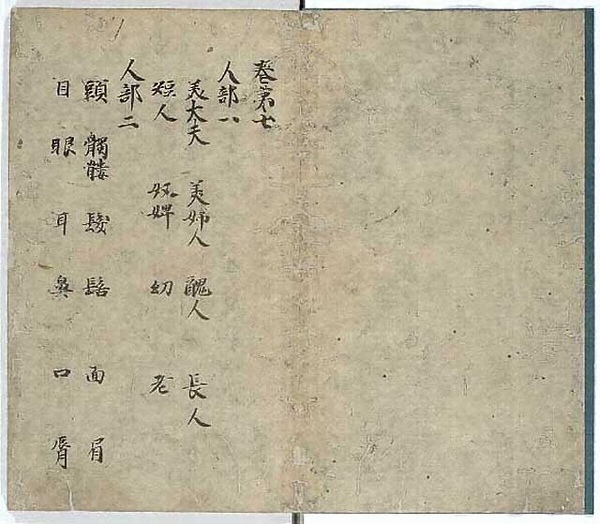 巻第七
人部一
美大夫 美婦人 醜人 長人
短人 奴婢 幼 老
人部二
頭 髑髏 髮 髻 面 眉
目 眼 耳 鼻 口 脣